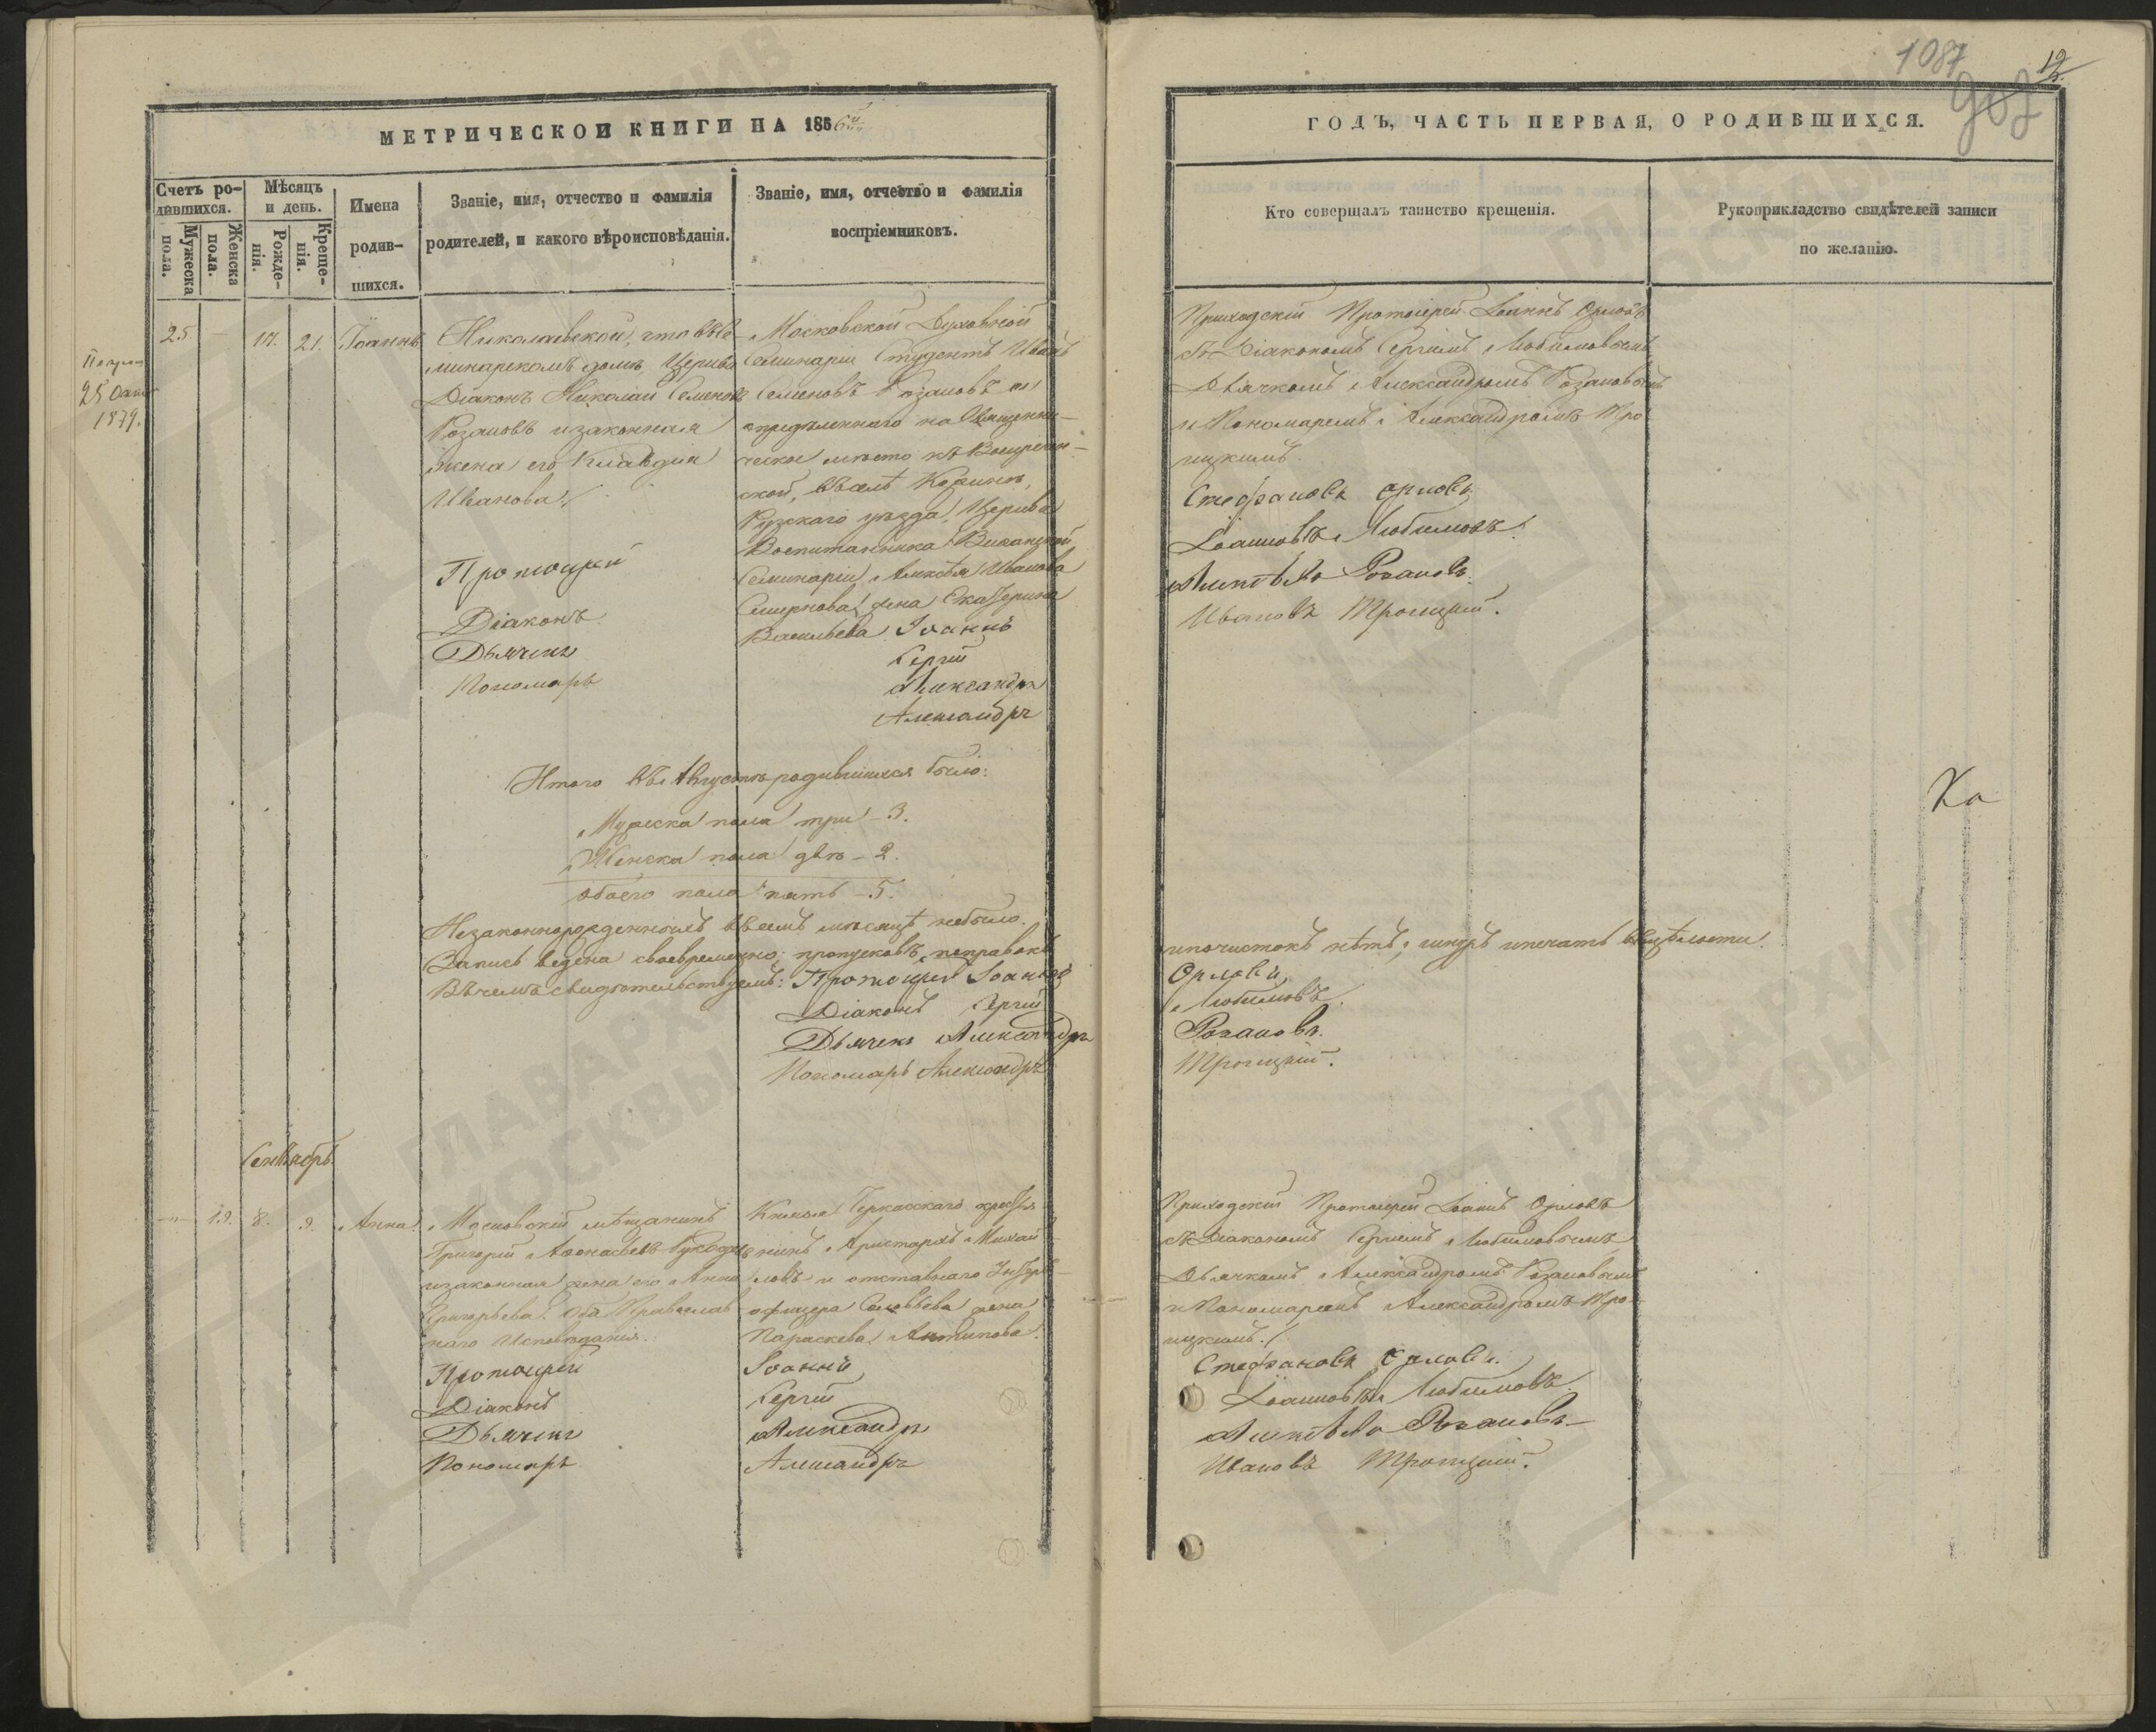 1087
907
12
МЕТРИЧЕСКОЙ КНИГИ НА 1856й
ГОДЪ, ЧАСТЬ ПЕРВАЯ, О РОДИВШИХСЯ.
Счетъ ро-
дившихся.
Мужеска
пола.
Женска
пола.
Мѣсяцъ
и день.
Рожде-
нія.
Креще-
нія.
Имена
родив-
шихся.
Званіе, имя, отчество и фамилія
родителей, и какого вѣроисповѣданія.
Званіе, имя, отчество и фамилія
воспріемниковъ.
Кто совершалъ таинство крещенія.
Рукоприкладство свидѣтелей записи
по желанію.
25
1879.
25. — 17. 21. Іоаннъ
Николаевской, что въ Се-
минарскомъ домѣ, Церкви
Діаконъ Николай Семеновъ
Розановъ и законная
жена его Клавдія
Иванова.
Московской Духовной
Семинаріи Студентъ Иванъ
Семеновъ Розановъ и
опредѣленнаго на Священни-
ческое мѣсто къ Воскресен-
ской, въ селѣ
Рузскаго уѣзда, Церкви
Воспитанника Виѳанской
Семинаріи Алексѣя Иванова
Смирнова жена Екатерина
Васильева.
Приходскій Протоіерей Іоаннъ Орловъ
съ Діакономъ Сергіемъ Любимовымъ
Дьячкомъ Александромъ Розановымъ
и Пономаремъ Александромъ Тро-
ицкимъ.
Протоіерей Іоаннъ Стефановъ Орловъ.
Діаконъ Сергій Іоанновъ Любимовъ.
Дьячекъ Александръ Алексѣевъ Розановъ.
Пономарь Александръ Ивановъ Троицкій.
Итого въ Августѣ родившихся было:
Мужеска пола три — 3.
Женска пола двѣ — 2.
Обоего пола пять — 5.
Незаконнорожденныхъ въ семъ мѣсяцѣ не было.
Запись ведена своевременно; пропусковъ, поправокъ
и почистокъ нѣтъ; шнуръ и печать въ цѣлости.
Въ чемъ свидѣтельствуемъ: Протоіерей Іоаннъ Орловъ
Діаконъ Сергій Любимовъ.
Дьячекъ Александръ Розановъ.
Пономарь Александръ Троицкій.
Ка
Сентябрь.
— 19. 8. 9. Анна.
Московскій мѣщанинъ
Григорій Аѳонасьевъ
и законная жена его Анна
Григорьева. Оба Православ-
наго Исповѣданія.
Князя Черкасскаго крестья-
нинъ Аристархъ Михай-
ловъ и отставнаго Унтеръ-
офицера Соловьева жена
Параскева Антипова.
Приходскій Протоіерей Іоаннъ Орловъ
съ Діакономъ Сергіемъ Любимовымъ
Дьячкомъ Александромъ Розановымъ
и Пономаремъ Александромъ Тро-
ицкимъ.
Протоіерей Іоаннъ Стефановъ Орловъ.
Діаконъ Сергій Іоанновъ Любимовъ.
Дьячекъ Александръ Алексѣевъ Розановъ.
Пономарь Александръ Ивановъ Троицкій.
ГЛАВАРХИВ
МОСКВЫ
ГЛАВАРХИВ
МОСКВЫ